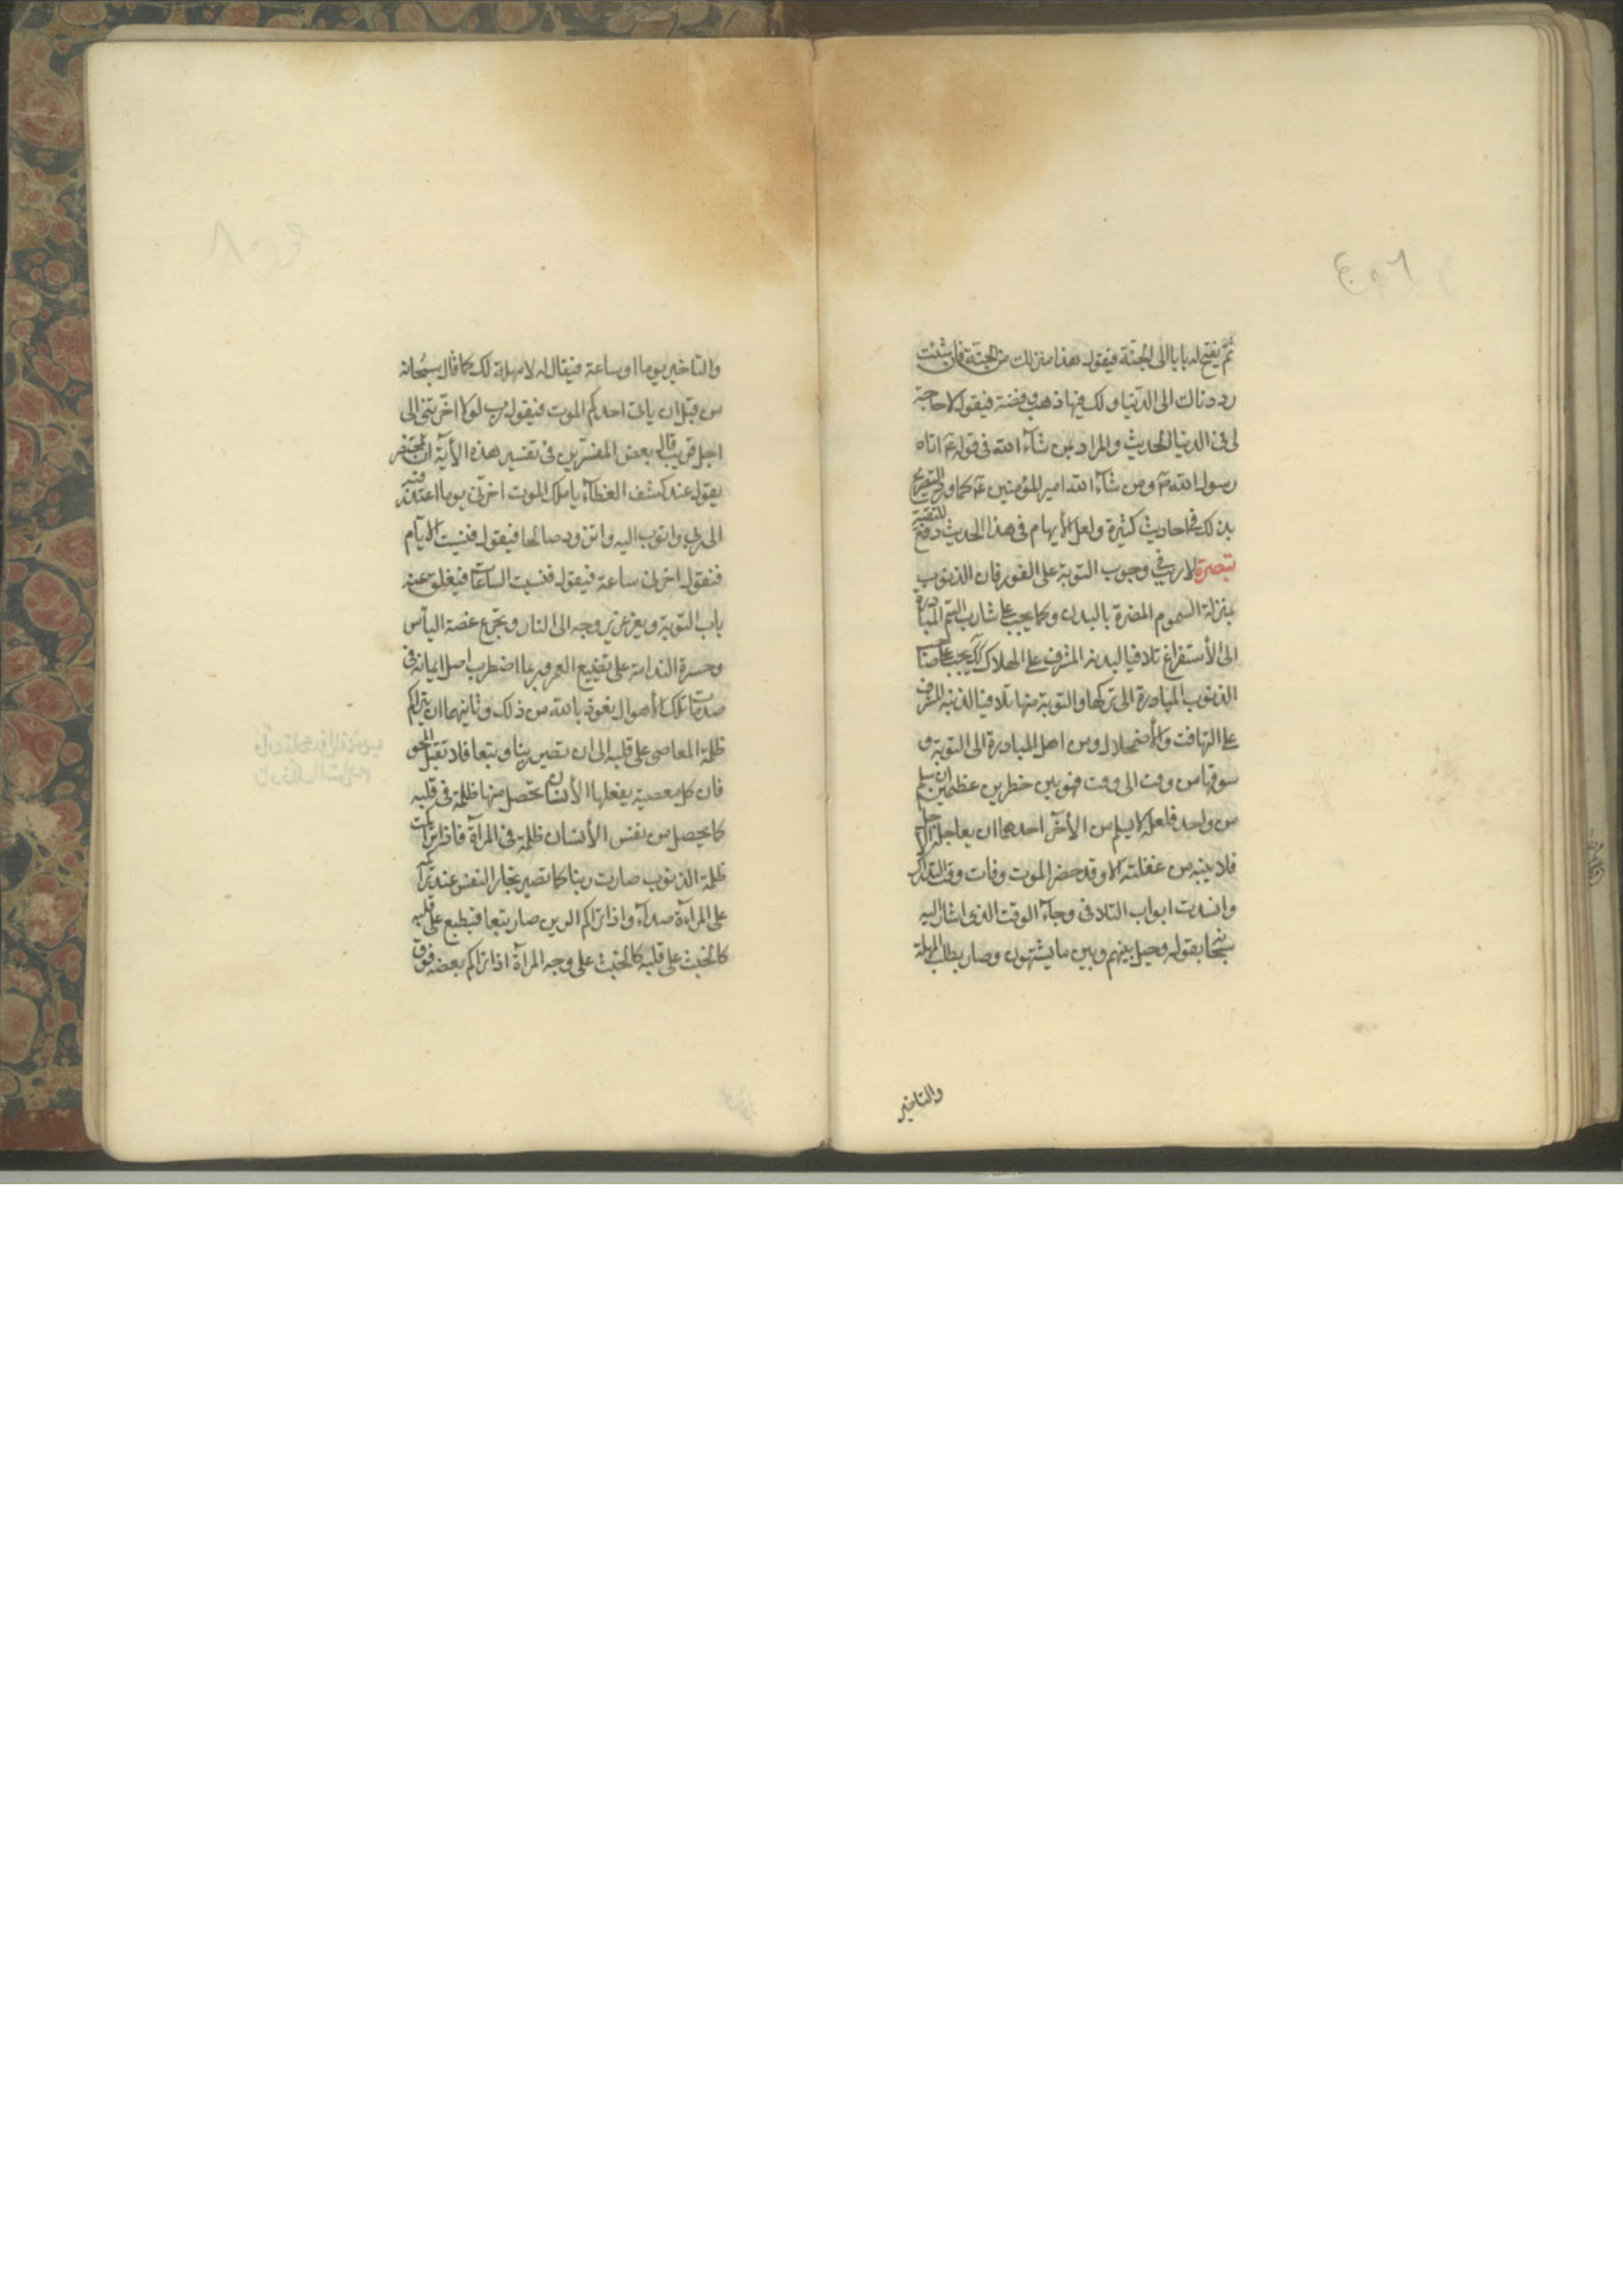 ثمّ يفتح له بابا الى الجنّة فيقول هذا منزلك من الجنّة فان شئت
رددناك الى الدّنيا ولك فيها ذهب وفضة فيقول لا حاجة
لى فى الدنيا الحديث والمراد بمن شآء الله فى قوله ع اتاه
رسول الله ص ومن شآء الله امير المؤمنين ع كما ورد التصريح
بذلك فى احاديث كثيرة ولعل الأبهام فى هذا الحديث دفع للتقية
تبصرة لا ريب فى وجوب التوبة على الفور فان الذنوب
بمنزلة السموم المضرة بالبدن وكما يجب على شارب السّم المبادرة
الى الأستفراغ تلافيا لبدنه المشرف على الهلاك كك يجب على صاحب
الذنوب المبادرة الى تركها والتوبة منها تلافيا لدينه المشرف
على التهافت والأضمحلال ومن اهمل المبادرة الى التوبة و
سوفها من وقت الى وقت فهو بين خطرين عظيمين ان سلم
من واحد فلعله لا يسلم من الأخر احدهما ان يعاجله الاجل
فلا ينبه من غفلته الا وقد حضر الموت وفات وقت التدارك
وانسدت ابواب التلافى وجآء الوقت الذى اشار اليه
سبحانه بقوله وحيل بينهم وبين ما يشتهون وصار يطلب المهلة
والتاخير
والتاخير يوما او ساعة فيقال له لا مهلة لك كما قال سبحانه
من قبل ان ياتى احدكم الموت فيقول رب لولا اخّرتنى الى
اجل قريب قال بعض المفسّرين فى تفسير هذه الأية ان المحتضر
يقول عند كشف الغطآء يا ملك الموت اخرنى يوما اعتذر فيه
الى ربى واتوب اليه واتزود صالحا فيقول فنيت الايّام
فيقول اخرنى ساعة فيقول فنيت الساعات فيغلق عنه
باب التوبة ويغرغر بروحه الى النار ويتجرع غصة اليأس
وحسرة الندامة على تضييع العمر وربما اضطرب اصل ايمانه فى
صدمات تلك الأهوال نعوذ بالله من ذلك وثانيهما ان يتراكم
ظلمة المعاصى على قلبه الى ان تصير رينا وطبعا فلا تقبل المحو
فان كل معصية يفعلها الأنسان تحصل منها ظلمة فى قلبه
كما يحصل من نفس الأنسان ظلمة فى المرآة فاذا تراكمت
ظلمة الذنوب صارت رينا كما تصير بخار النفس عند تراكمه
على المراءة صداء واذا تراكم الرين صار طبعا فيطبع على قلبه
كالخبث على قلبه كالخبث على وجه المرآة اذا تراكم بعضه فوق